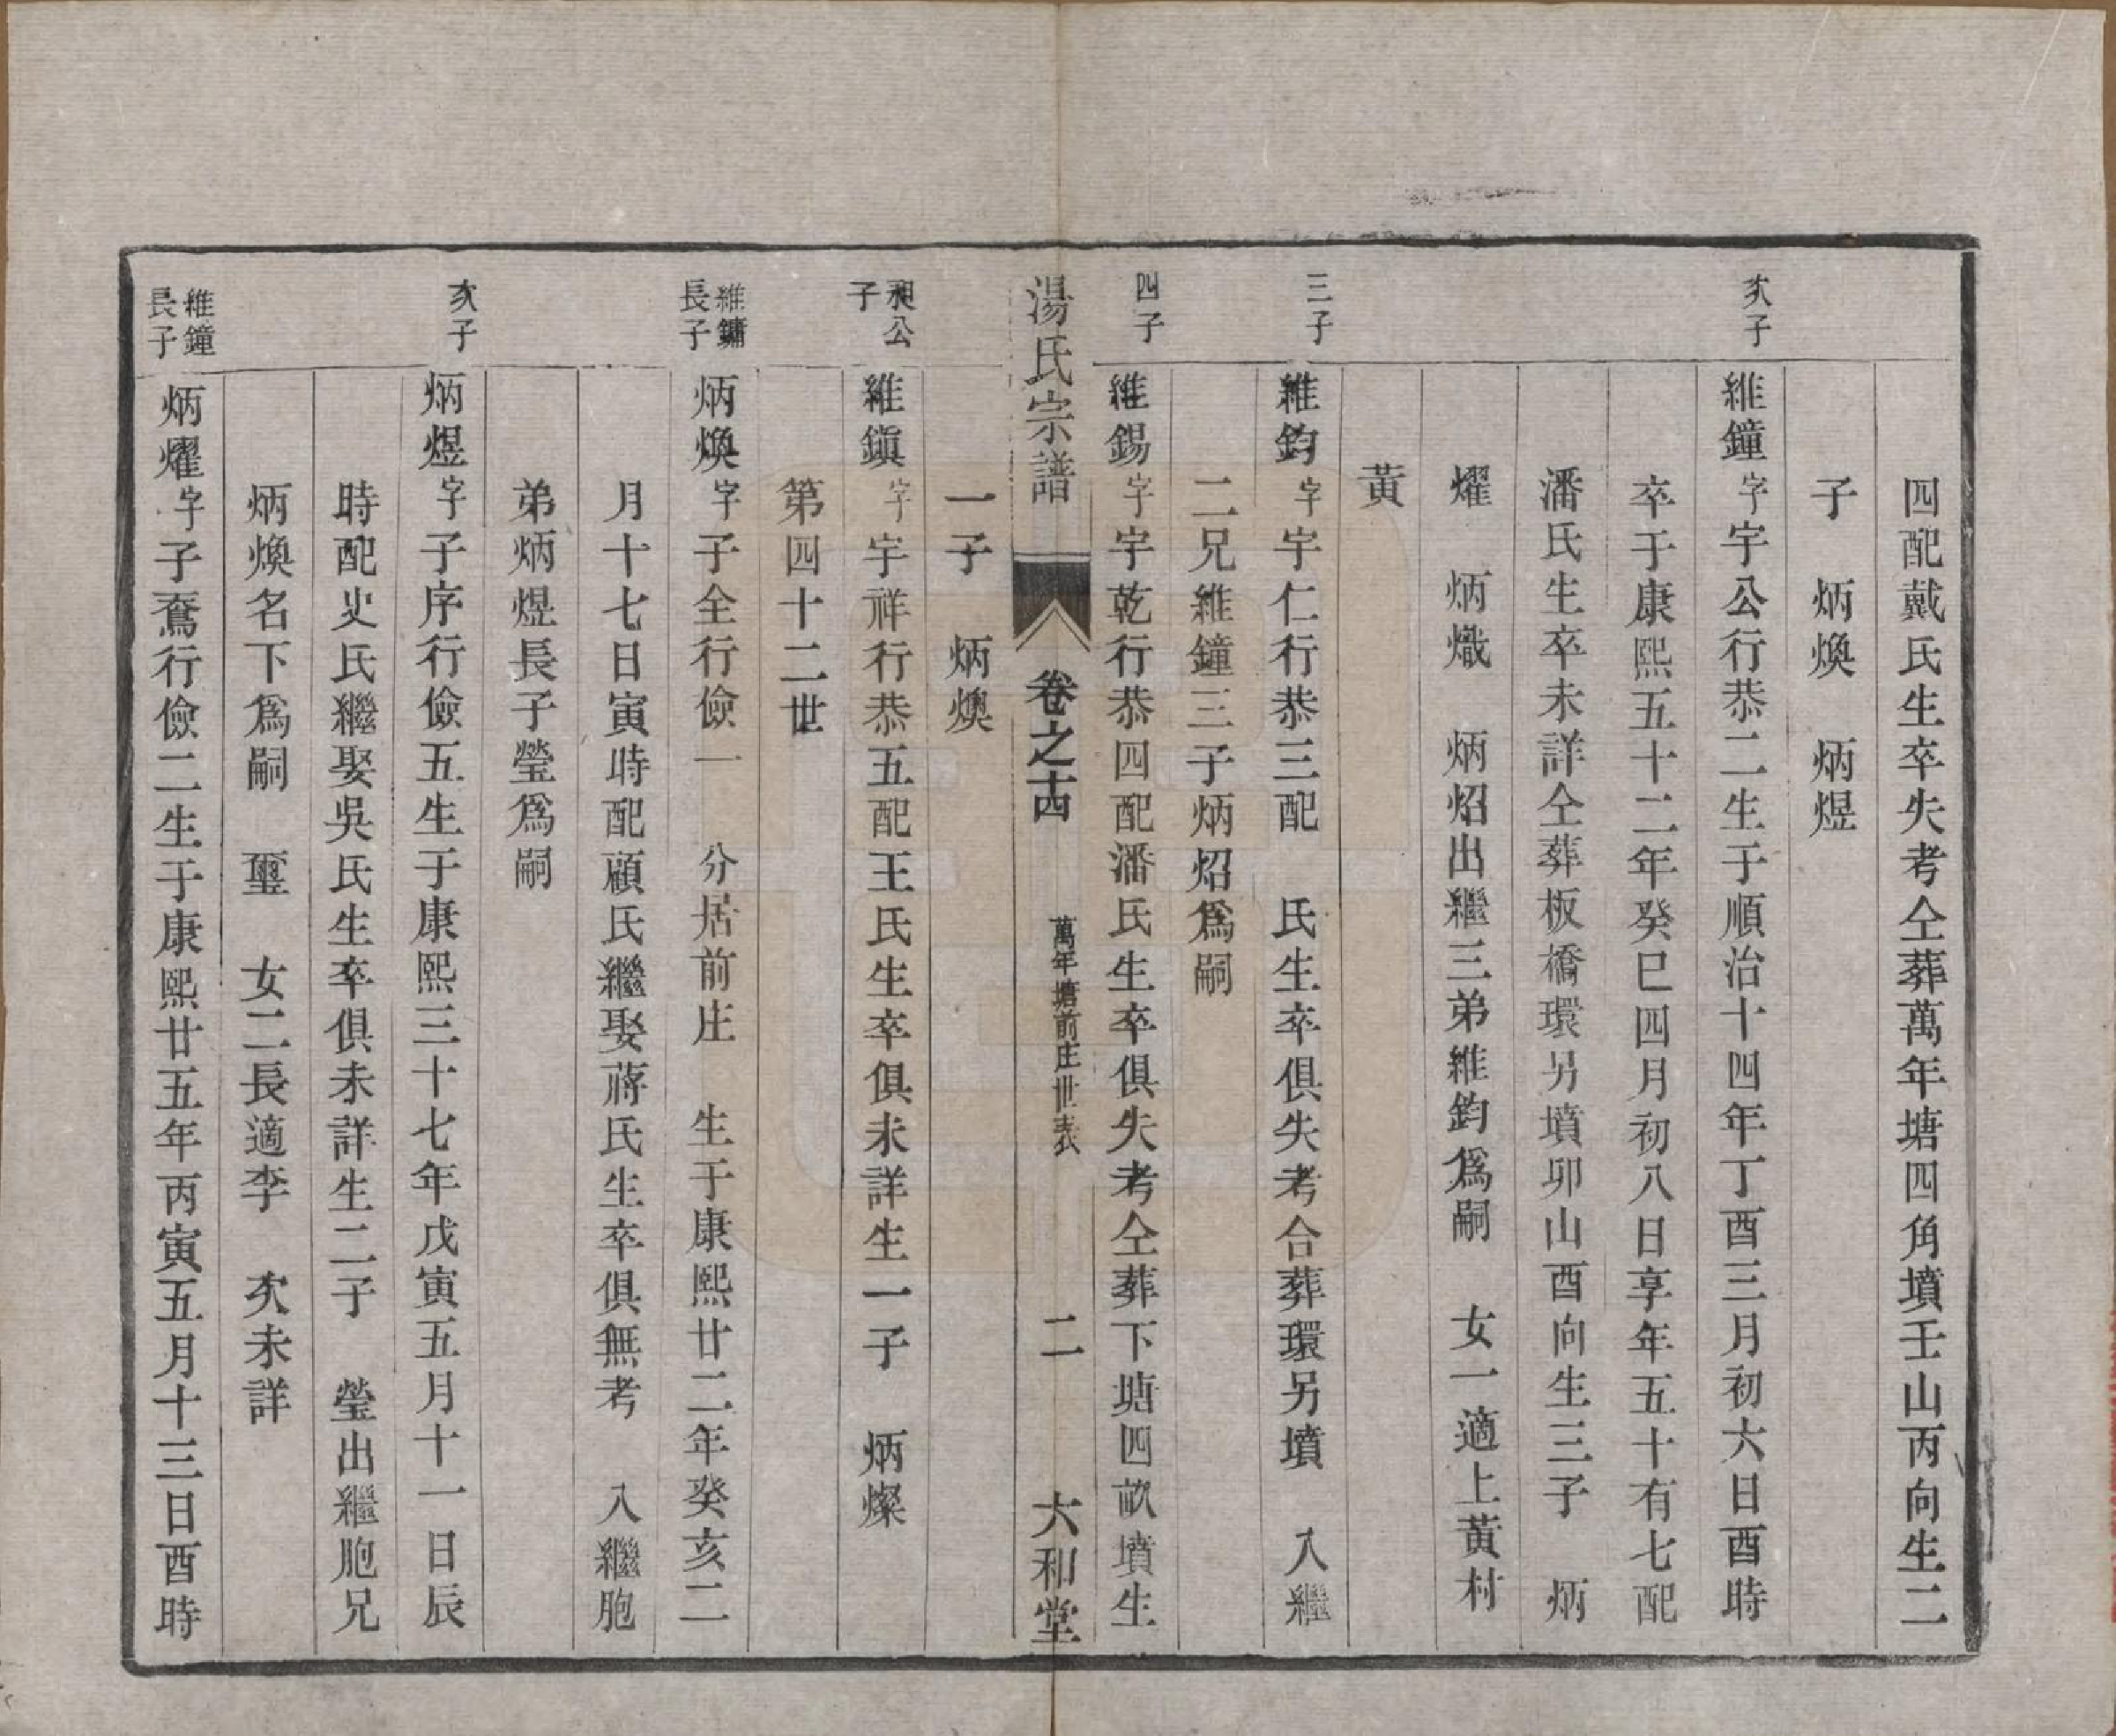 四配戴氏生卒失考仝葬萬年塘四角墳壬山丙向生二
子　炳煥　炳煜
次子
維鐘字宇公行恭二生于順治十四年丁酉三月初六日酉時
卒于康熙五十二年癸巳四月初八日享年五十有七配
潘氏生卒未詳仝葬板橋環另墳卯山酉向生三子　炳
燿　炳熾　炳炤出繼三弟維鈞爲嗣　女一適上黃村
黃
三子
維鈞字宇仁行恭三配　氏生卒俱失考合葬環另墳　入繼
二兄維鐘三子炳炤爲嗣
四子
維錫字宇乾行恭四配潘氏生卒俱失考仝葬下塘四畝墳生
湯氏宗譜　卷之十四　萬年塘前庄世表　二　六和堂
一子　炳燠
公
子
維鎮字宇祥行恭五配王氏生卒俱未詳生一子　炳燦
第四十二世
維鏞
長子
炳煥字子全行儉一　分居前庄　生于康熙廿二年癸亥二
月十七日寅時配顧氏繼娶蔣氏生卒俱無考　入繼胞
弟炳煜長子瑩爲嗣
次子
炳煜字子序行儉五生于康熙三十七年戊寅五月十一日辰
時配史氏繼娶吳氏生卒俱未詳生二子　瑩出繼胞兄
炳煥名下爲嗣　璽　女二長適李　次未詳
維鐘
長子
炳燿字子騫行儉二生于康熙廿五年丙寅五月十三日酉時